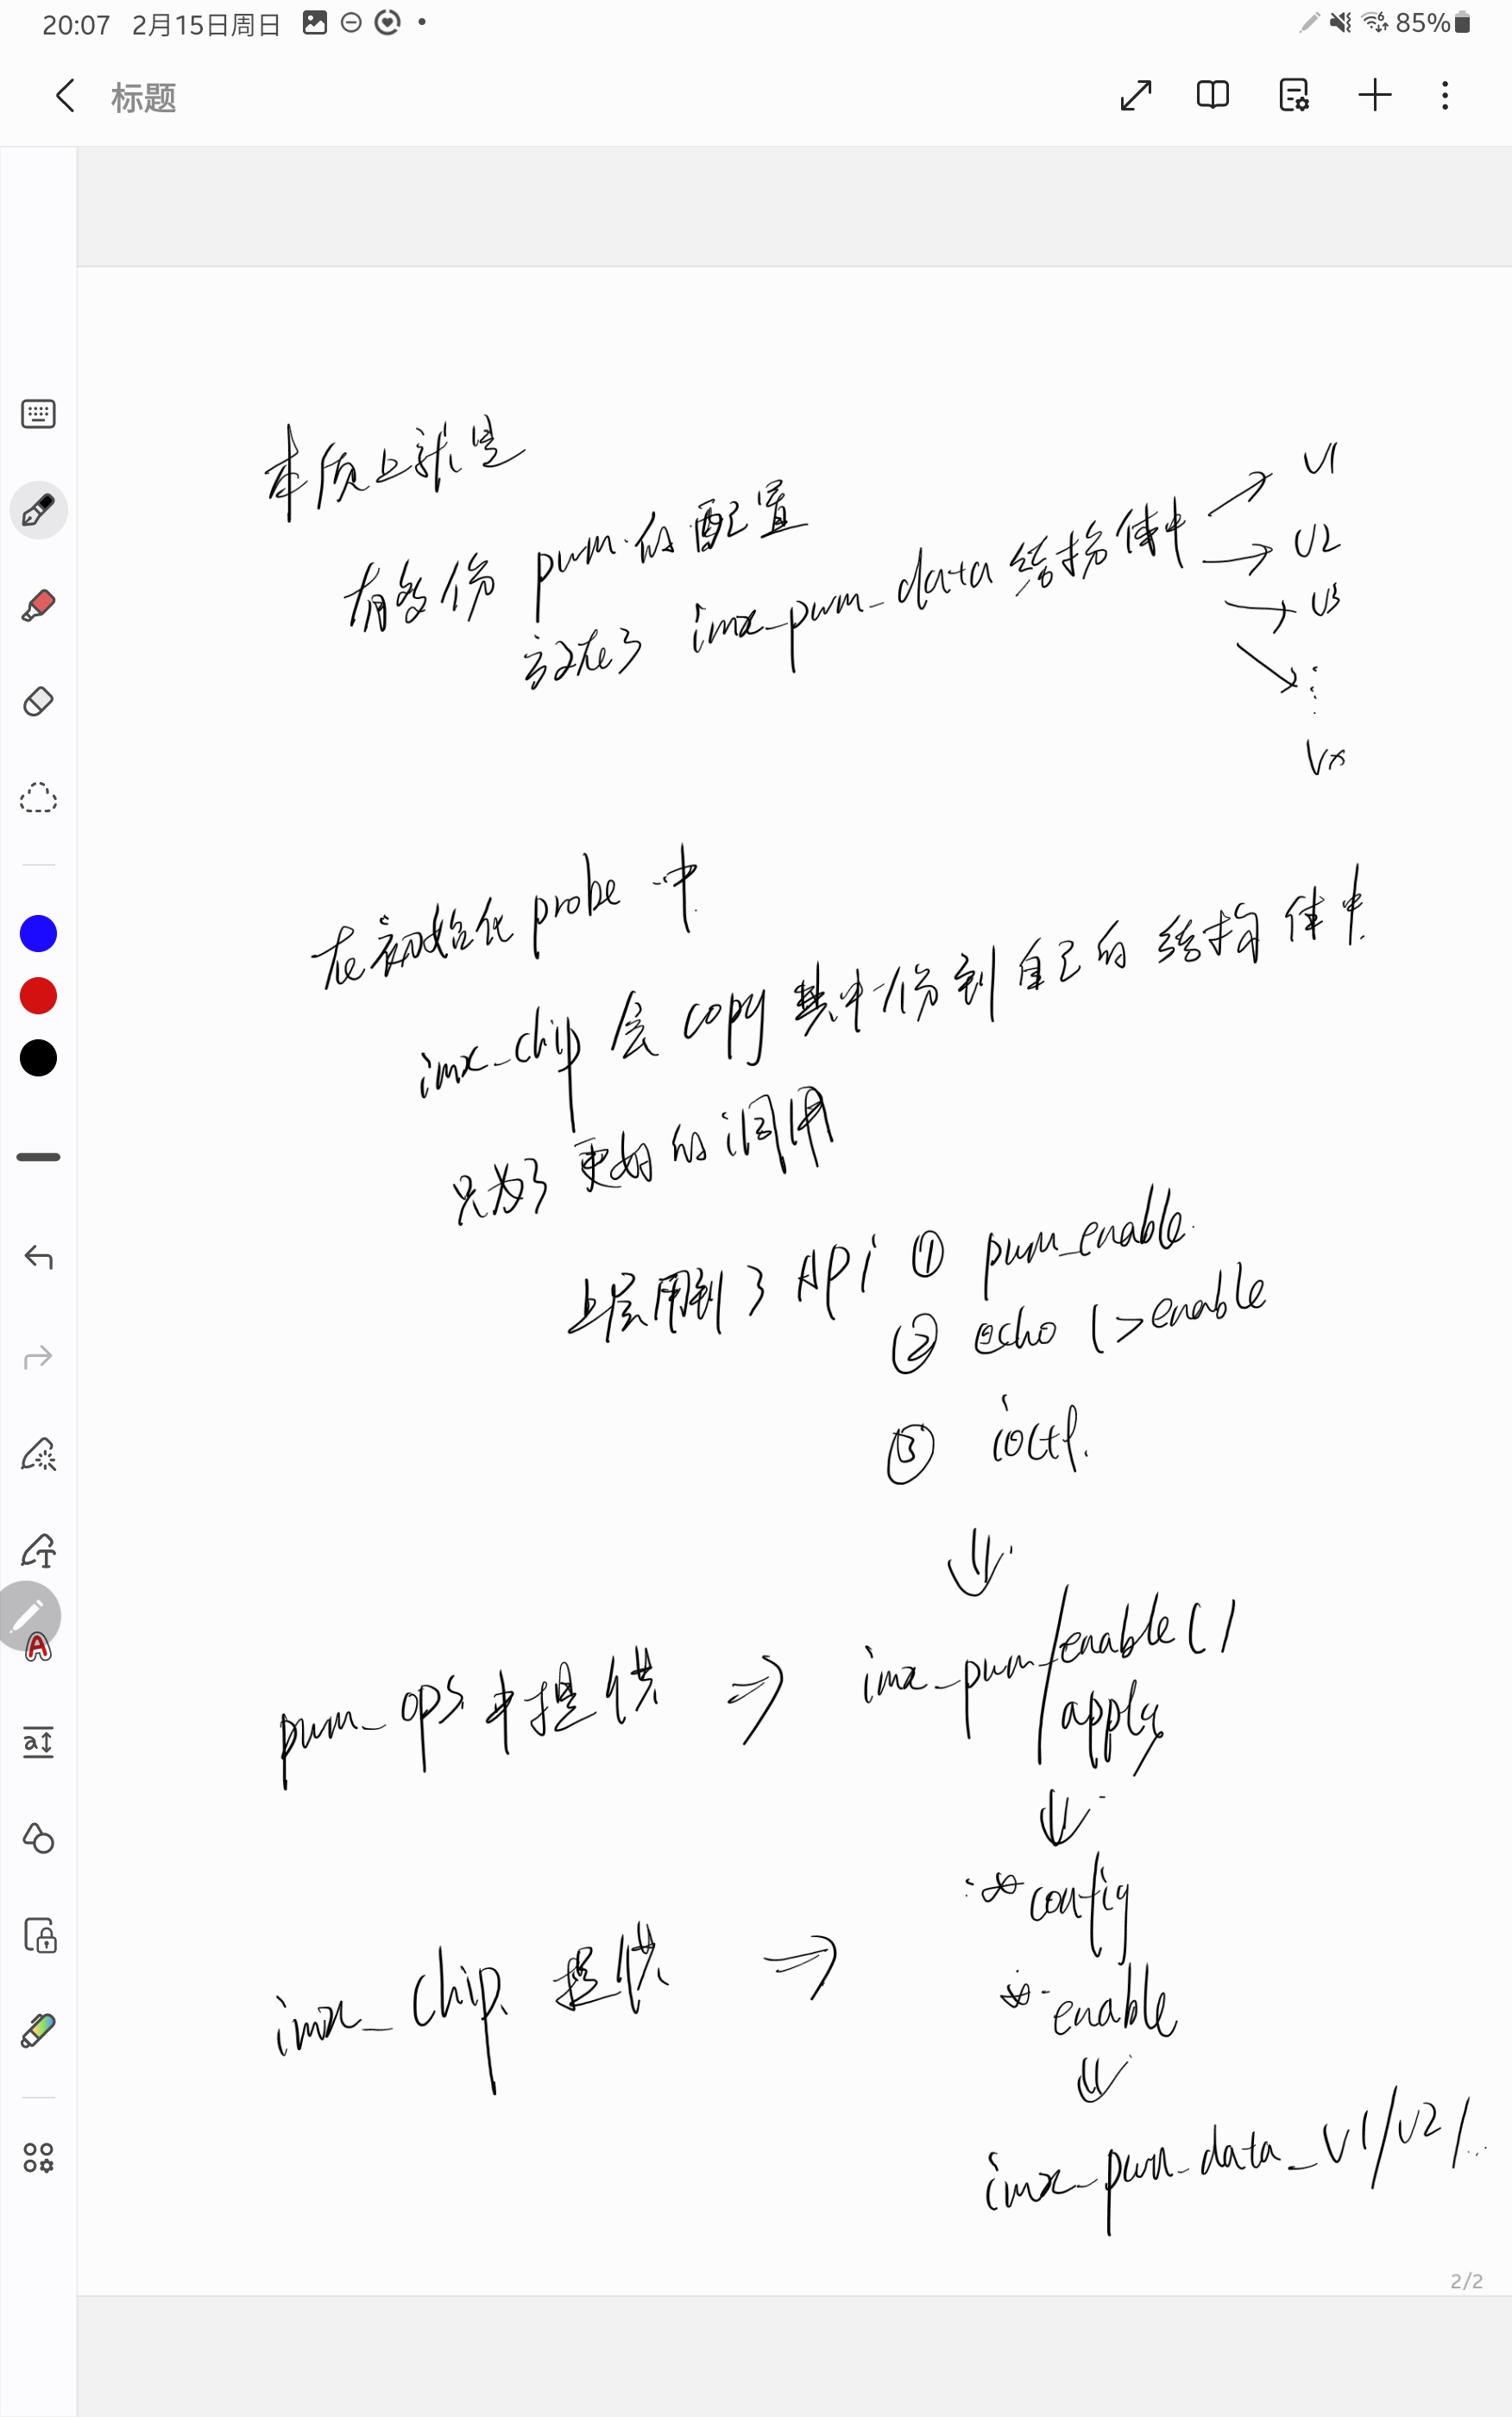 20:07 2月15日周日 85%
标题
本质上就是
有多份 pwm 的配置
放在了 imx_pwm_data 结构体中
V1
V2
V3
Vx
在初始化 probe 中
imx_chip 会 copy 其中一份到 自己的 结构体中.
只为了更好的调用
上层用到了 API ① pwm_enable.
② echo 1 > enable
③ ioctl.
pwm_ops 中提供 ⇒ imx_pwm_enable()
/apply
* config
imx_chip 提供 ⇒
* enable
imx_pwm_data_V1/V2/...
2/2